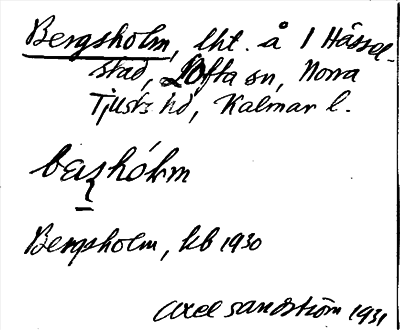 Bergsholm, lht. å 1 Hässel-
stad, Lofta sn, Norra
Tjusts hd, Kalmar l.
Bergsholm, kb 1930
Axel Sandström 1931